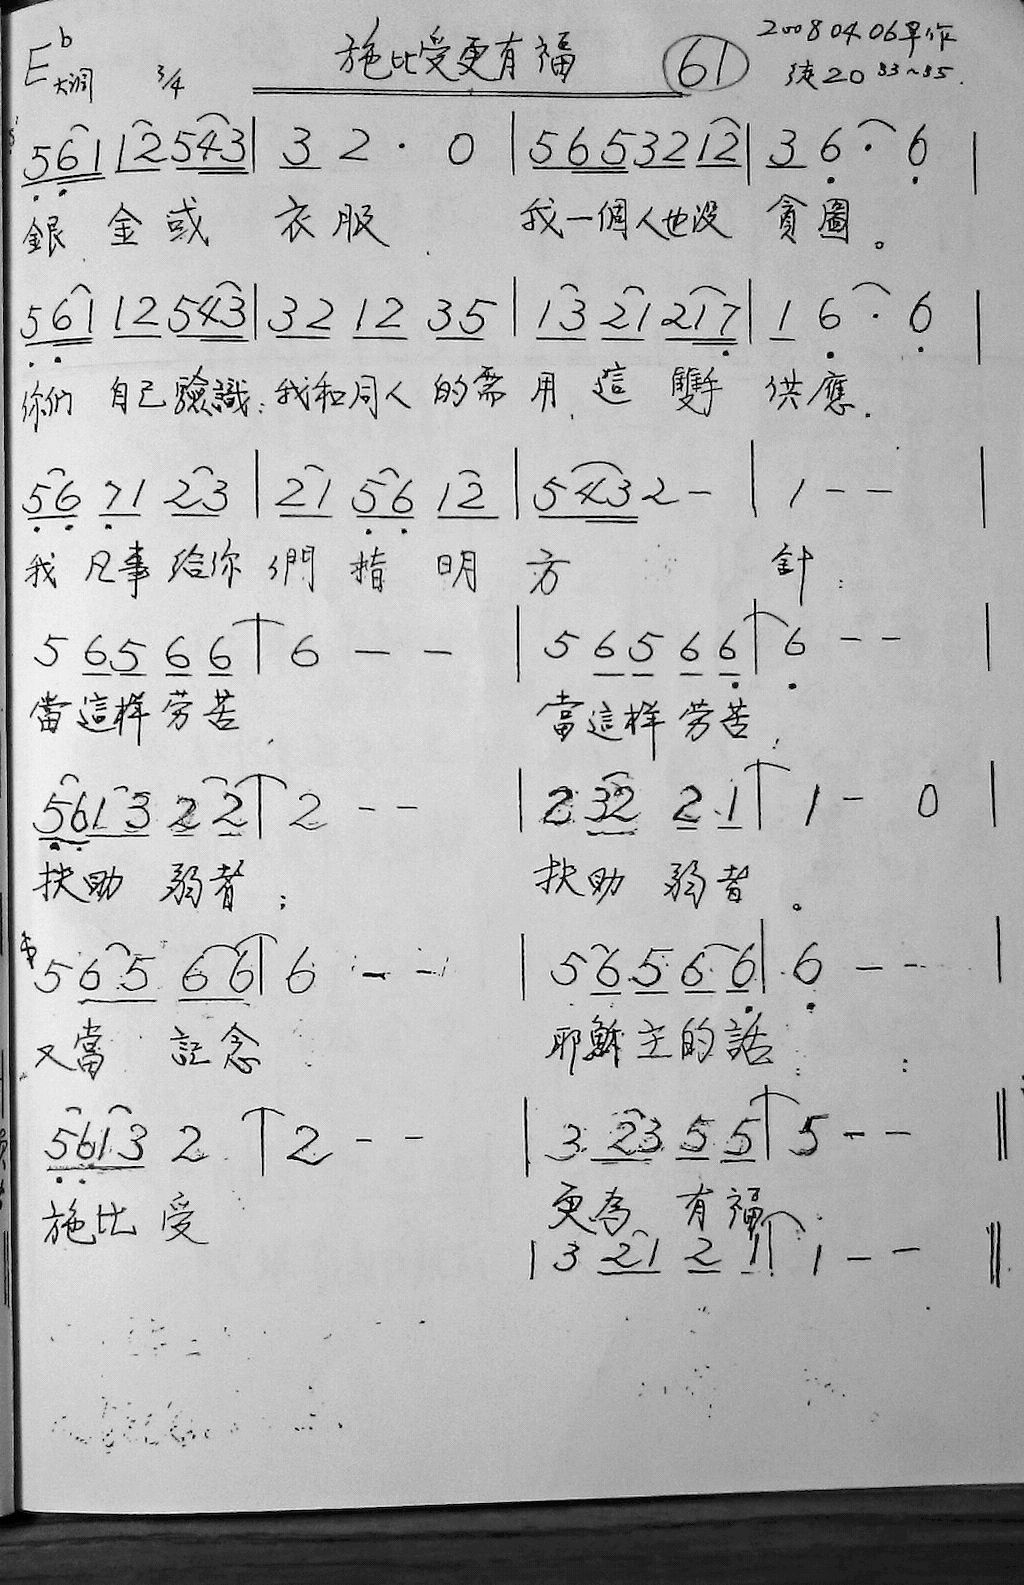 E♭大调 3/4 施比受更有福 61 20080406早作
徒20 33~35.
5611254 3| 3 2 · 0 |56532 12| 3 6 · 6 |
銀 金或 衣服 我一個人也没 貪圖。
561 12543|32 12 35|13 21 217|1 6 · 6|
你们 自己驗識；我和同人的需用，這雙手 供應．
56 71 23|21 56 12|5432 - |1 - -|
我 凡事給你們 指 明 方 針；
5 65 66|6 - - |5 65 66|6 - -|
當這样劳苦， 當這样劳苦，
5613 2 2|2 - - |2 32 2 1|1 - 0|
扶助 弱者； 扶助 弱者。
5 65 66|6 - - |56 5 66|6 - -
又當 記念 耶穌主的話：
5613 2 |2 - - |3 23 5 5|5 - - ‖
施比受 更為 有福．
|3 21 2 1|1 - - ‖